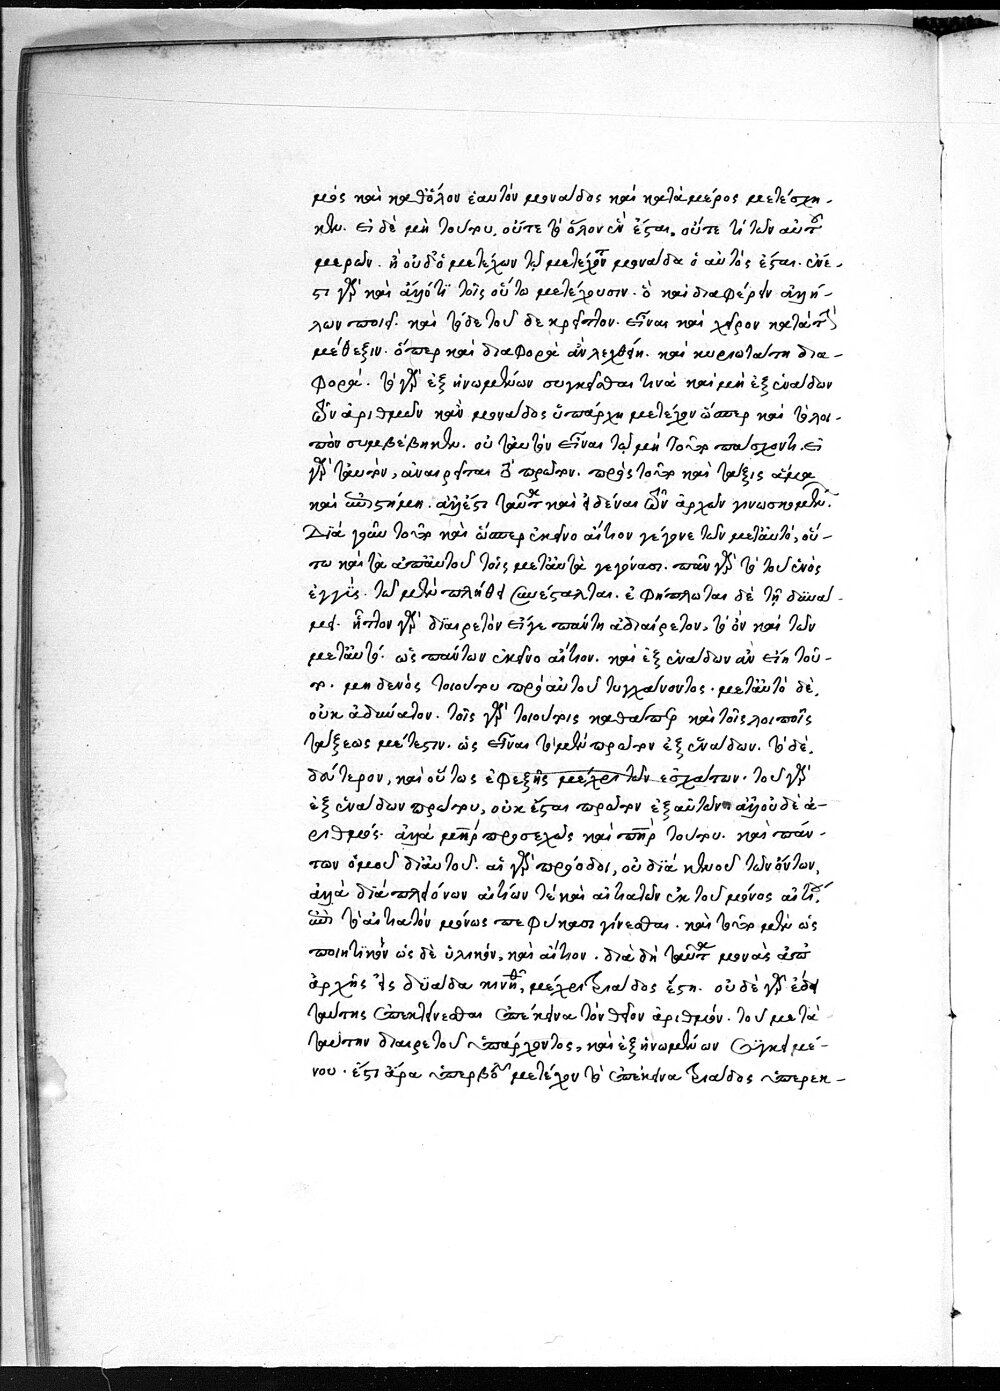 μός καὶ καθόλον ἑαυτὸν μονάδος καὶ κατὰ μέρος μετέσχη-
κεν. εἰ δὲ μὴ τούτου, οὔτε τὸ ὅλον ἓν ἔσται, οὔτε τὶ τῶν αὐτοῦ
μερῶν. ἢ οὐδ' ὁ μετέχων τῷ μετέχον μονάδα ὁ αὐτός ἔσται. ἕνε-
στι γὰρ καὶ ἀλλότι τοῖς οὕτω μετέχουσιν. ὃ καὶ διαφέρειν ἀλλή-
λων ποιεῖ. καὶ τόδε τοῦδε κρεῖττον. εἶναι καὶ χεῖρον κατὰ τὴν
μέθεξιν. ὅπερ καὶ διαφορὰ ἂν λεχθείη. καὶ κυριωτάτη δια-
φορά. τὸ γὰρ ἐξ ἡνωμένων συγκεῖσθαι τινὰ καὶ μὴ ἐξ ἑνάδων
τὸν ἀριθμὸν κἂν μονάδος ὑπάρχη μετέχον ὥσπερ καὶ τὸ λοι-
πὸν συμβέβηκεν. οὐ ταὐτὸν εἶναι τῷ μὴ τοῦτο πάσχοντι. εἰ
γὰρ ταὐτὸν, ἀναιρεῖται τὸ πρῶτον. πρὸς τοῦτο καὶ τάξις ἅμα
καὶ ἐπιστήμη. ἀλλ' ἔστι ταῦτα καὶ εἰδέναι τὴν ἀρχῶν γινωσκομένων.
Διὰ γοῦν τοῦτο καὶ ὥσπερ ἐκεῖνο αἴτιον γέγονε τῶν μεταὐτὸ, οὕ-
τω καὶ τὰ ἀπαὐτοῦ τοῖς μεταὐτὰ γεγόνασι. πᾶν γὰρ τὸ τοῦ ἑνὸς
ἐγγὺς. τῷ μὲν πλήθει συνέσταλται. ἐφήπλωται δὲ τῇ δυνά-
μει. ἧττον γὰρ διαιρετὸν εἴγε πάντη ἀδιαίρετον, τὸ ὂν καὶ τῶν
μεταὐτό. ὡς πάντων ἐκεῖνο αἴτιον. καὶ ἐξ ἑνάδων ἂν εἴη τοῦ-
το. μηδενὸς τοιούτου πρὸ αὐτοῦ τυγχάνοντος. μεταὐτὸ δὲ,
οὐκ ἀδύνατον. τοῖς γὰρ τοιούτοις καθάπερ καὶ τοῖς λοιποῖς
τάξεως μέτεστιν. ὡς εἶναι τὸ μὲν πρῶτον ἐξ ἑνάδων. τὸ δὲ,
δεύτερον, καὶ οὕτως ἐφεξῆς μέχρι τῶν ἐσχάτων. τοῦ γὰρ
ἐξ ἑνάδων πρώτου, οὐκ ἔσται πρῶτον ἐξ αὐτῶν ἀλλ' οὐδὲ ἀ-
ριθμός. ἀλλὰ μὴτηρ προσεχῶς καὶ πατὴρ τούτου. καὶ πάν-
των ὁμοῦ δι' αὐτοῦ. αἱ γὰρ πρόοδοι, οὐ διὰ κενοῦ τῶν ὄντων,
ἀλλὰ διὰ πλειόνων αἰτίων τὲ καὶ αἰτιατῶν ἐκ τοῦ μόνος αἰτίου,
ἐπὶ τὸ αἰτιατὸν μόνως πεφύκασι γίνεσθαι. καὶ τοῦτο μὲν ὡς
ποιητικὸν ὡς δὲ ὑλικὸν, καὶ αἴτιον. διὰ δὴ ταῦτα μονὰς ἀπ'
ἀρχῆς εἰς δυάδα κινηθεῖσα, μέχρι τριάδος ἔστη. οὐδὲ γὰρ ἔδει
ταύτης ἐπεκτείνεσθαι ἐπέκεινα τὸν θεῖον ἀριθμὸν. τοῦ μετὰ
ταύτην διαιρετοῦ ὑπάρχοντος, καὶ ἐξ ἡνωμένων συγκειμέ-
νου. ἔστι ἄρα ὑπερβολὴν μετέχον τὸ ἐπέκεινα τριάδος ὑπερεκ-